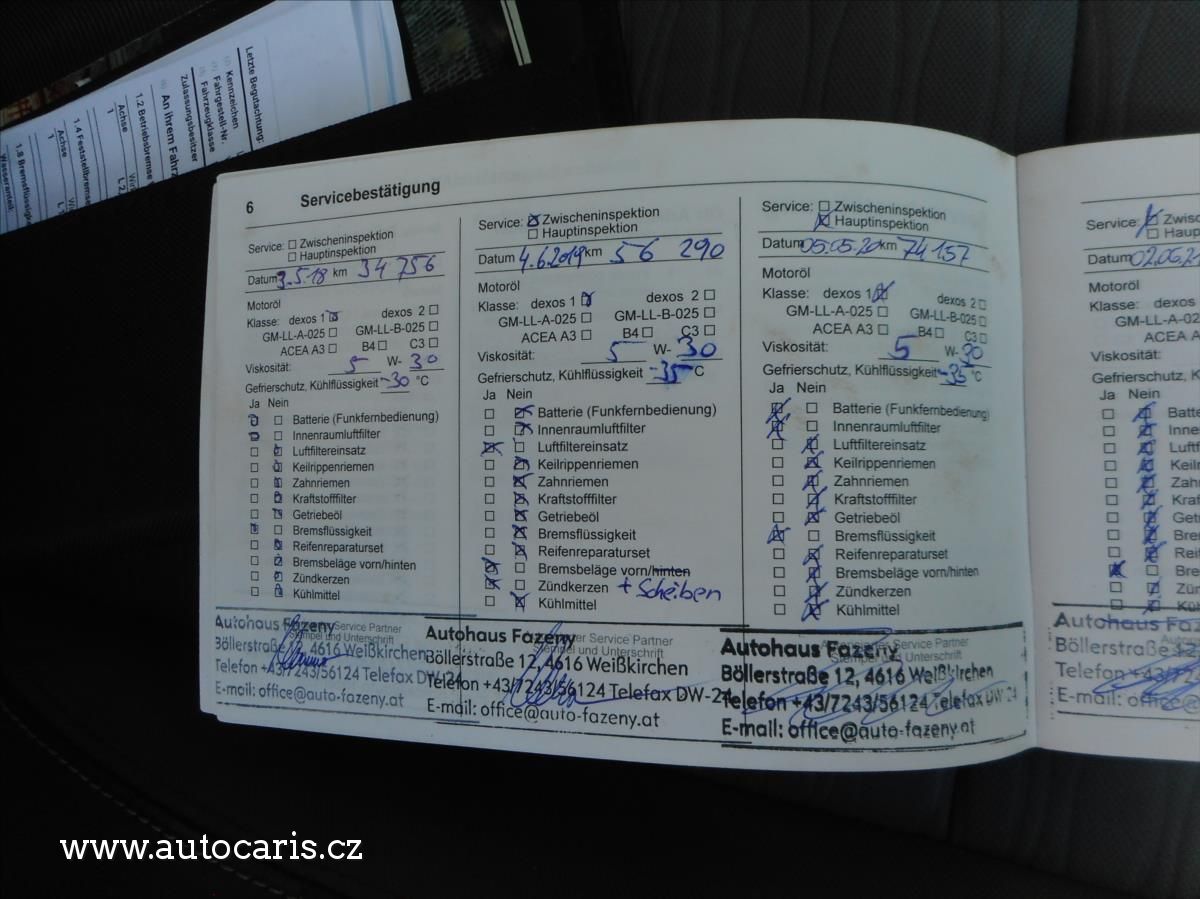 Letzte Begutachtung:
Kennzeichen
Fahrgestell-Nr.
Fahrzeugklasse
Zulassungsbesitzer
An ihrem Fahrz
1.2 Betriebsbremse
Achse
1
1.4 Feststellbremse
Achse
1
1.8 Bremsflüssigk
Wasseranteil:
6 Servicebestätigung
Service: Zwischeninspektion
Hauptinspektion
Datum 3.5.18 km 34 756
Motoröl
Klasse: dexos 1 dexos 2
GM-LL-A-025 GM-LL-B-025
ACEA A3 B4 C3
Viskosität: 5 W- 30
Gefrierschutz, Kühlflüssigkeit -30 °C
Ja Nein
Batterie (Funkfernbedienung)
Innenraumluftfilter
Luftfiltereinsatz
Keilrippenriemen
Zahnriemen
Kraftstofffilter
Getriebeöl
Bremsflüssigkeit
Reifenreparaturset
Bremsbeläge vorn/hinten
Zündkerzen
Kühlmittel
Service Partner
Stempel und Unterschrift
Autohaus Fazeny
Böllerstraße 12, 4616 Weißkirchen
Telefon +43/7243/56124 Telefax DW-24
E-mail: office@auto-fazeny.at
Service: Zwischeninspektion
Hauptinspektion
Datum 4.6.2019 km 56 290
Motoröl
Klasse: dexos 1 dexos 2
GM-LL-A-025 GM-LL-B-025
ACEA A3 B4 C3
Viskosität: 5 W- 30
Gefrierschutz, Kühlflüssigkeit -35 °C
Ja Nein
Batterie (Funkfernbedienung)
Innenraumluftfilter
Luftfiltereinsatz
Keilrippenriemen
Zahnriemen
Kraftstofffilter
Getriebeöl
Bremsflüssigkeit
Reifenreparaturset
Bremsbeläge vorn/hinten
Zündkerzen + Scheiben
Kühlmittel
Service Partner
Stempel und Unterschrift
Autohaus Fazeny
Böllerstraße 12, 4616 Weißkirchen
Telefon +43/7243/56124 Telefax DW-24
E-mail: office@auto-fazeny.at
Service: Zwischeninspektion
Hauptinspektion
Datum 05.05.20 km 74 157
Motoröl
Klasse: dexos 1 dexos 2
GM-LL-A-025 GM-LL-B-025
ACEA A3 B4 C3
Viskosität: 5 W- 30
Gefrierschutz, Kühlflüssigkeit -35 °C
Ja Nein
Batterie (Funkfernbedienung)
Innenraumluftfilter
Luftfiltereinsatz
Keilrippenriemen
Zahnriemen
Kraftstofffilter
Getriebeöl
Bremsflüssigkeit
Reifenreparaturset
Bremsbeläge vorn/hinten
Zündkerzen
Kühlmittel
Service Partner
Stempel und Unterschrift
Autohaus Fazeny
Böllerstraße 12, 4616 Weißkirchen
Telefon +43/7243/56124 Telefax DW-24
E-mail: office@auto-fazeny.at
Service: Zwisc
Haup
Datum 02.06.21
Motoröl
Klasse: dexos
GM-LL-A-02
ACEA A
Viskosität:
Gefrierschutz, Kühl
Ja Nein
Batte
Inne
Luft
Keil
Zah
Kra
Get
Bre
Rei
Bre
Zü
Kü
Autohaus Faz
Böllerstraße 12
Telefon +43/72
E-mail: office
www.autocaris.cz